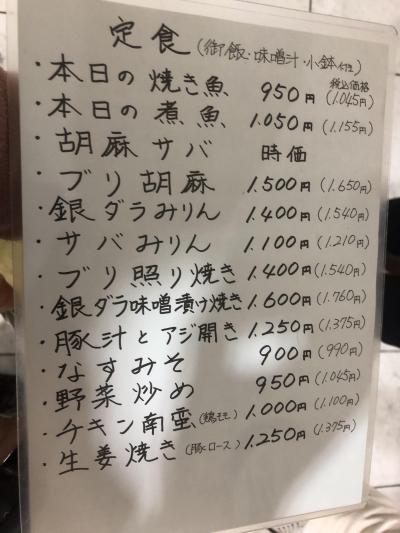 定食 (御飯・味噌汁・小鉢付き)
税込価格
・本日の焼き魚 950円 (1.045円)
・本日の煮魚 1.050円 (1.155円)
・胡麻サバ 時価
・ブリ胡麻 1.500円 (1.650円)
・銀ダラみりん 1.400円 (1.540円)
・サバみりん 1.100円 (1.210円)
・ブリ照り焼き 1.400円 (1.540円)
・銀ダラ味噌漬け焼き 1.600円 (1.760円)
・豚汁とアジ開き 1.250円 (1.375円)
・なすみそ 900円 (990円)
・野菜炒め 950円 (1.045円)
・チキン南蛮 (鶏モモ) 1.000円 (1.100円)
・生姜焼き (豚ロース) 1.250円 (1.375円)